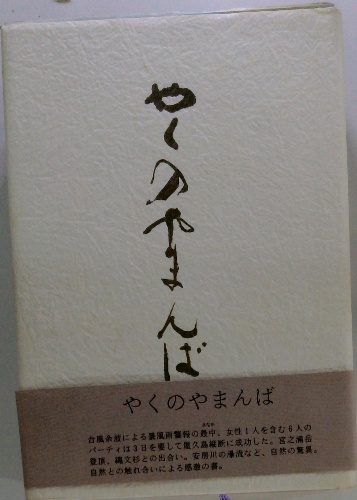 やくのやまんば
やくのやまんば
さなか
台風余波による暴風雨警報の最中、女性1人を含む6人の
パーティは3日を要して屋久島縦断に成功した。宮之浦岳
登頂、縄文杉との出合い。安房川の瀑流など、自然の驚異。
自然との触れ合いによる感激の書。